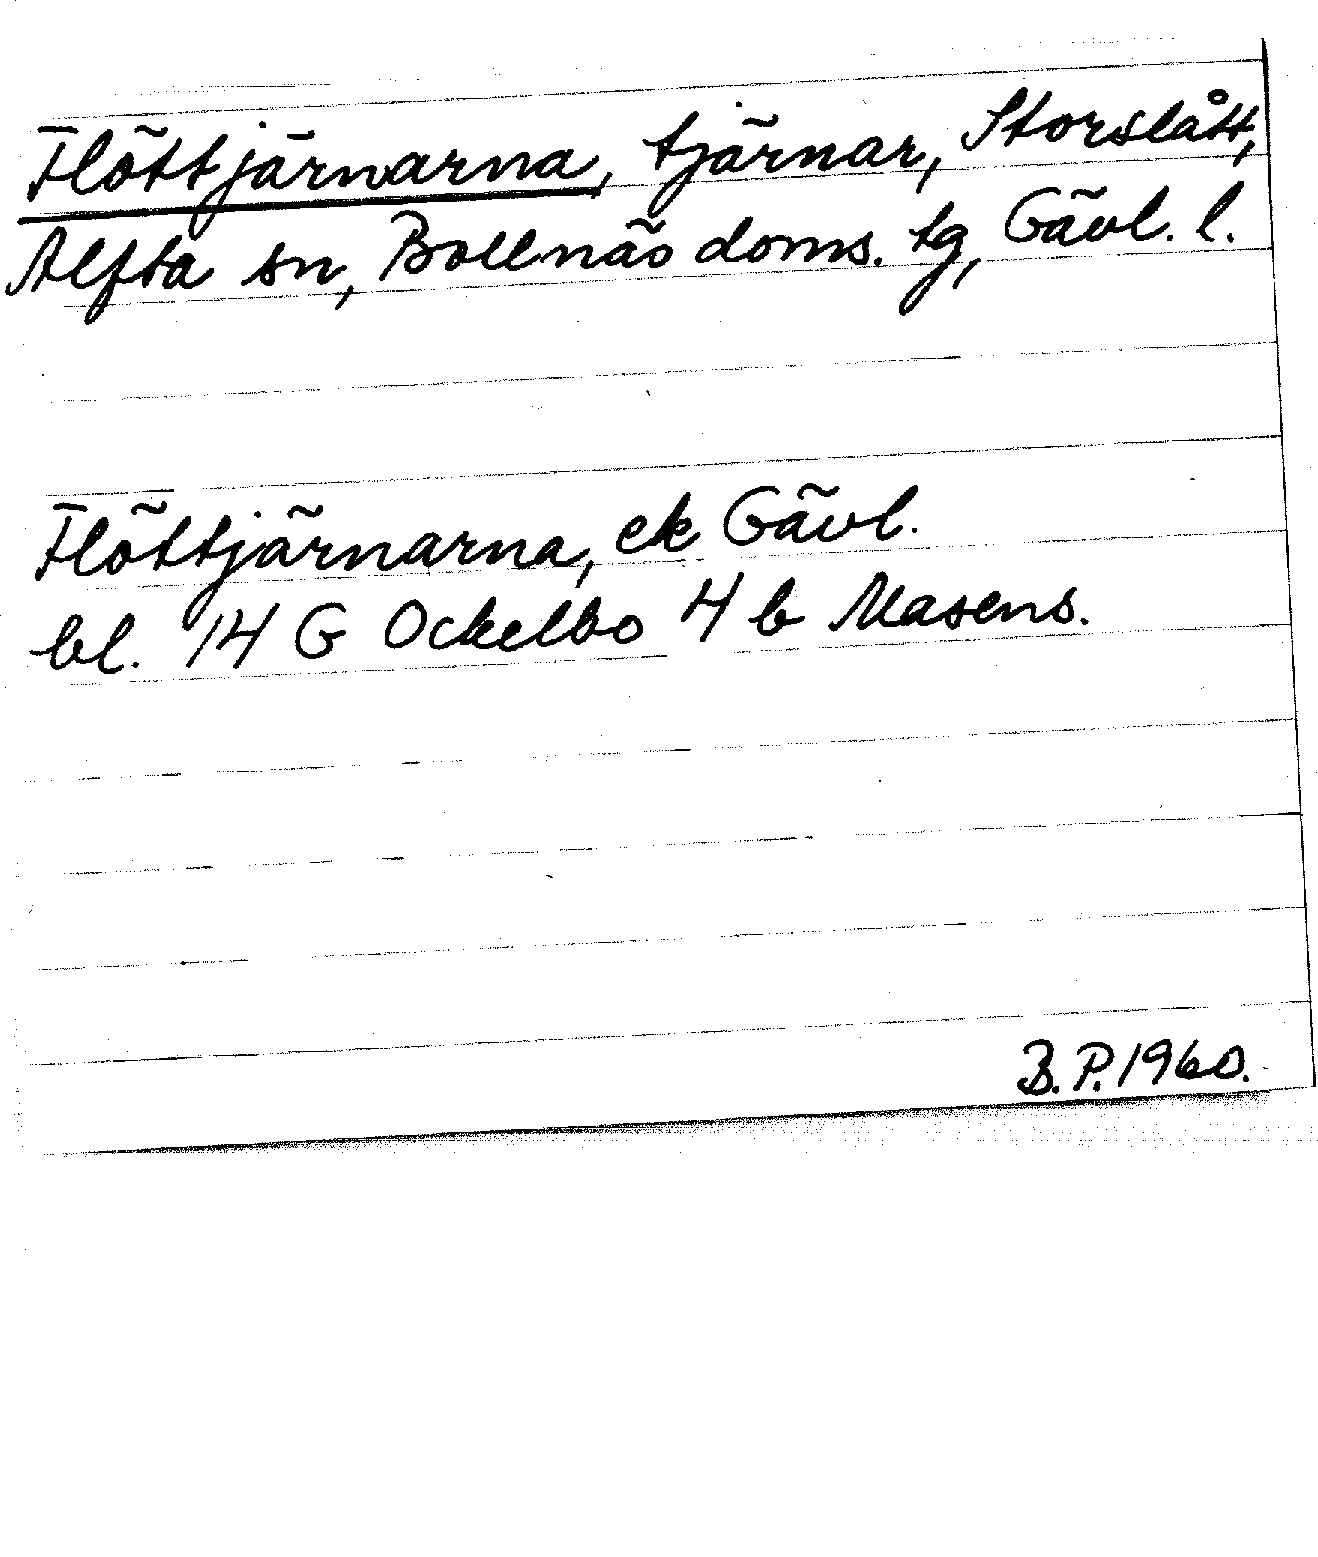 Flöttjärnarna, tjärnar, Storslått,
Alfta sn, Bollnäs doms. tg, Gävl. l.
Flöttjärnarna, ek Gävl.
bl. 14 G Ockelbo 4 b Masens.
B.P. 1960.